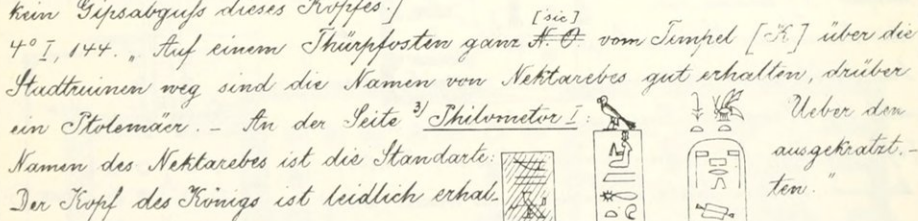 kein Gipsabguss dieses Kopfes.]
[sic]
4° I, 144. „Auf einem Thürpfosten ganz N. O. vom Tempel [K] über die
Stadtruinen weg sind die Namen von Nektarebes gut erhalten, drüber
ein Ptolemäer. – An der Seite 3) Philometor I: Ueber den
Namen des Nektarebes ist die Standarte: ausgekratzt. –
Der Kopf des Königs ist leidlich erhal- ten."